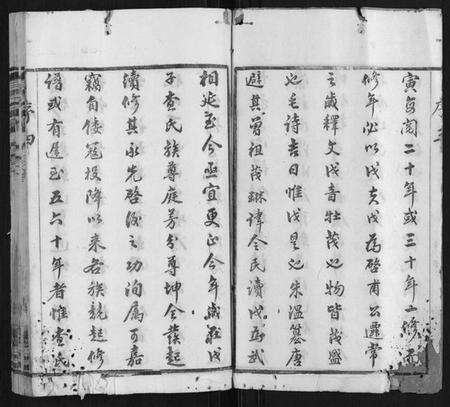 序三
寅每閱二十年或三十年一修而
修年必以戊夫戊為啓甫公遷常
之歲釋文戊音牡茂也物皆茂盛
也毛詩吉日惟戊是也朱溫篡唐
避其曾祖茂琳諱令民讀戊為武
相延至今亟宜更正今年歲在戊
子查氏族尊庭芳分尊坤全發起
續修其承先啓後之功洵屬可嘉
竊自倭寇投降以來各族競起修
譜或有遲至五六十年者惟查氏
序四